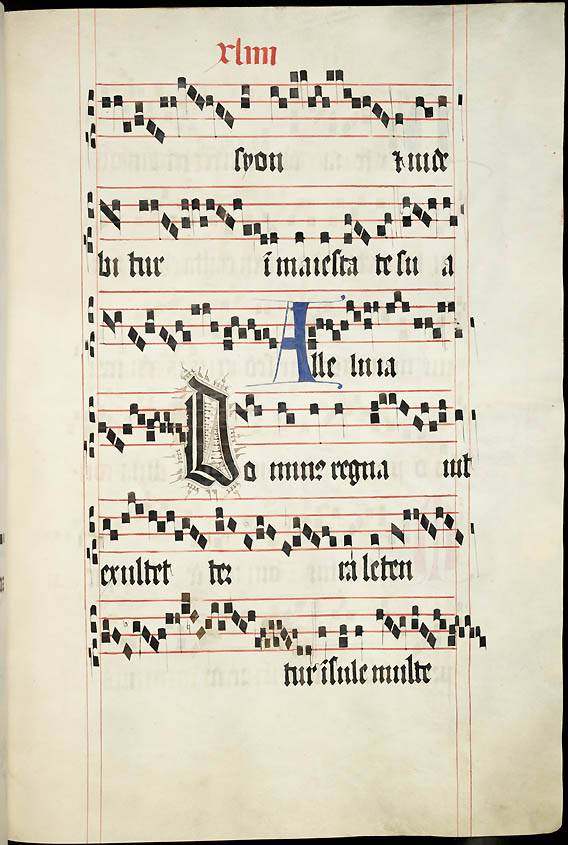 xliiii
syon ⁊ uide
bi tur ī maiesta te su a
Alle luia
Do minꝰ regna uit
exultet ter ra leten
tur īsule multe